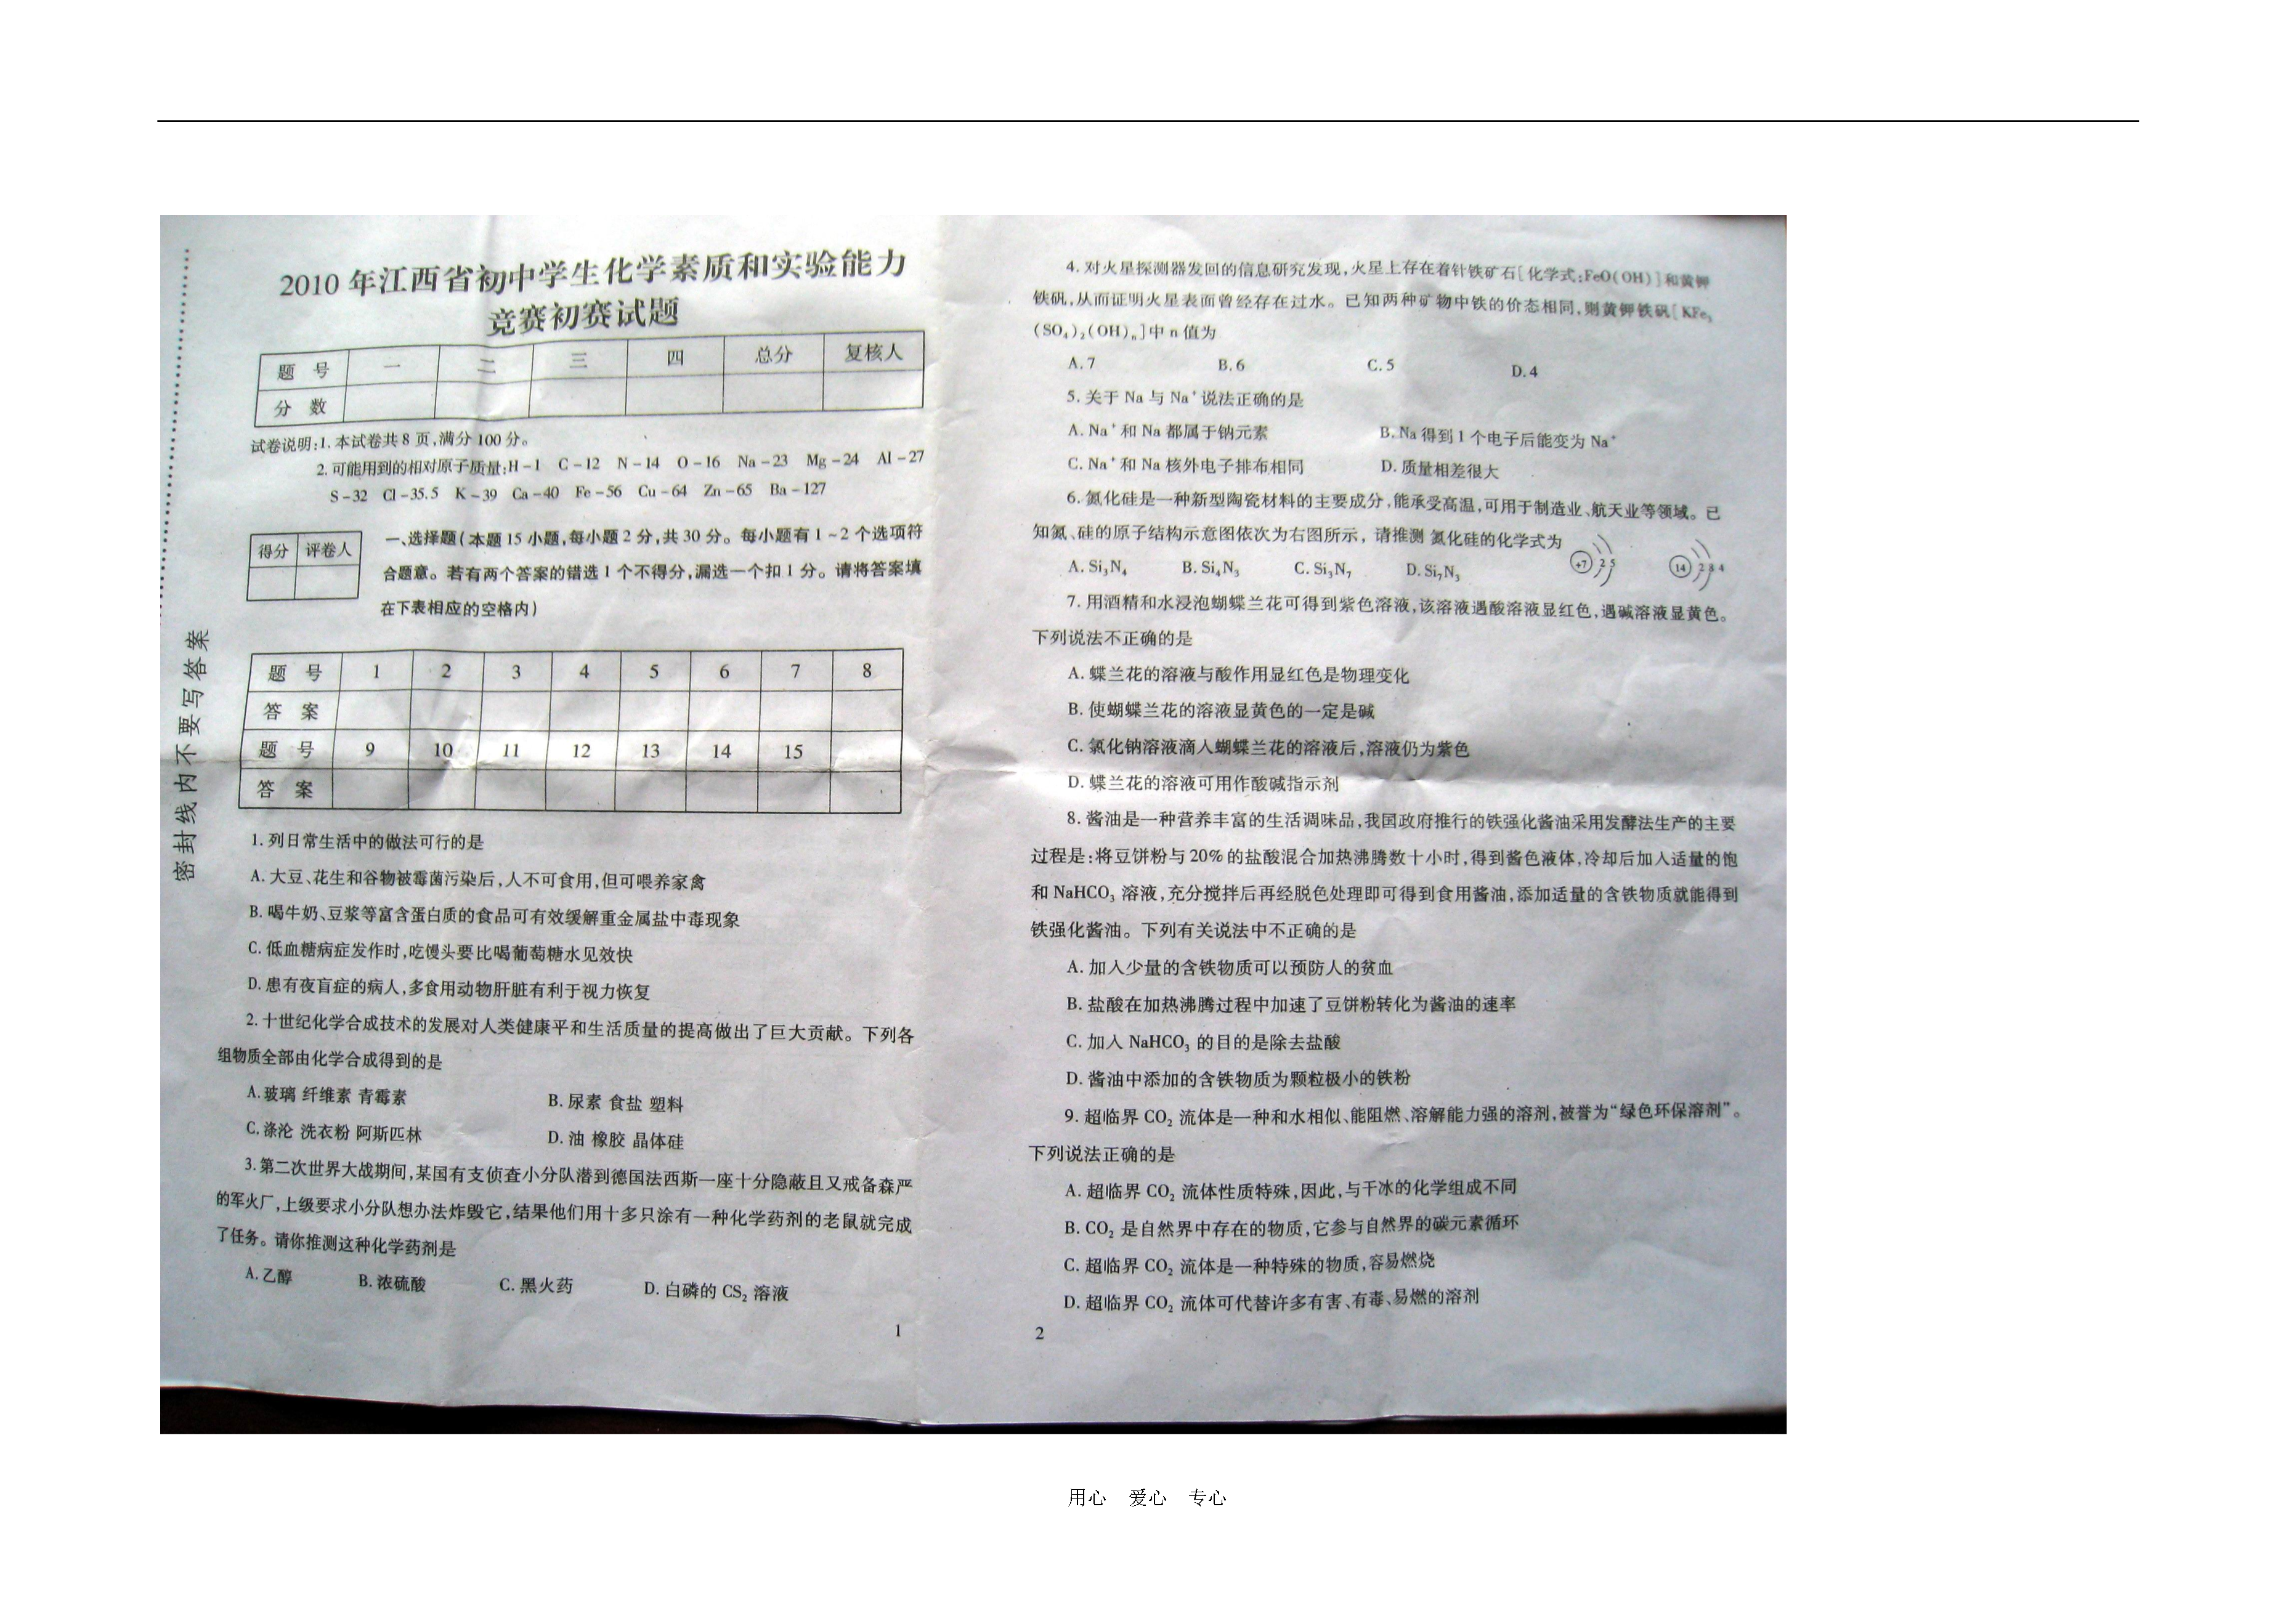 2010年江西省初中学生化学素质和实验能力
竞赛初赛试题
题 号 一 二 三 四 总分 复核人
分 数
试卷说明:1.本试卷共8页,满分100分。
2.可能用到的相对原子质量:H-1 C-12 N-14 O-16 Na-23 Mg-24 Al-27
S-32 Cl-35.5 K-39 Ca-40 Fe-56 Cu-64 Zn-65 Ba-127
得分 评卷人
一、选择题(本题15小题,每小题2分,共30分。每小题有1~2个选项符
合题意。若有两个答案的错选1个不得分,漏选一个扣1分。请将答案填
在下表相应的空格内)
题 号 1 2 3 4 5 6 7 8
答 案
题 号 9 10 11 12 13 14 15
答 案
密封线内不要写答案
1.列日常生活中的做法可行的是
A.大豆、花生和谷物被霉菌污染后,人不可食用,但可喂养家禽
B.喝牛奶、豆浆等富含蛋白质的食品可有效缓解重金属盐中毒现象
C.低血糖病症发作时,吃馒头要比喝葡萄糖水见效快
D.患有夜盲症的病人,多食用动物肝脏有利于视力恢复
2.十世纪化学合成技术的发展对人类健康平和生活质量的提高做出了巨大贡献。下列各
组物质全部由化学合成得到的是
A.玻璃 纤维素 青霉素 B.尿素 食盐 塑料
C.涤沦 洗衣粉 阿斯匹林 D.油 橡胶 晶体硅
3.第二次世界大战期间,某国有支侦查小分队潜到德国法西斯一座十分隐蔽且又戒备森严
的军火厂,上级要求小分队想办法炸毁它,结果他们用十多只涂有一种化学药剂的老鼠就完成
了任务。请你推测这种化学药剂是
A.乙醇 B.浓硫酸 C.黑火药 D.白磷的CS₂溶液
1
4.对火星探测器发回的信息研究发现,火星上存在着针铁矿石[化学式:FeO(OH)]和黄钾
铁矾,从而证明火星表面曾经存在过水。已知两种矿物中铁的价态相同,则黄钾铁矾[KFe₃
(SO₄)₂(OH)ₙ]中n值为
A.7 B.6 C.5 D.4
5.关于Na与Na⁺说法正确的是
A.Na⁺和Na都属于钠元素 B.Na得到1个电子后能变为Na⁺
C.Na⁺和Na核外电子排布相同 D.质量相差很大
6.氮化硅是一种新型陶瓷材料的主要成分,能承受高温,可用于制造业、航天业等领域。已
知氮、硅的原子结构示意图依次为右图所示,请推测 氮化硅的化学式为
+7 2 5 14 2 8 4
A.Si₃N₄ B.Si₄N₃ C.Si₃N₇ D.Si₇N₃
7.用酒精和水浸泡蝴蝶兰花可得到紫色溶液,该溶液遇酸溶液显红色,遇碱溶液显黄色。
下列说法不正确的是
A.蝶兰花的溶液与酸作用显红色是物理变化
B.使蝴蝶兰花的溶液显黄色的一定是碱
C.氯化钠溶液滴人蝴蝶兰花的溶液后,溶液仍为紫色
D.蝶兰花的溶液可用作酸碱指示剂
8.酱油是一种营养丰富的生活调味品,我国政府推行的铁强化酱油采用发酵法生产的主要
过程是:将豆饼粉与20%的盐酸混合加热沸腾数十小时,得到酱色液体,冷却后加人适量的饱
和NaHCO₃溶液,充分搅拌后再经脱色处理即可得到食用酱油,添加适量的含铁物质就能得到
铁强化酱油。下列有关说法中不正确的是
A.加人少量的含铁物质可以预防人的贫血
B.盐酸在加热沸腾过程中加速了豆饼粉转化为酱油的速率
C.加人NaHCO₃的目的是除去盐酸
D.酱油中添加的含铁物质为颗粒极小的铁粉
9.超临界CO₂流体是一种和水相似、能阻燃、溶解能力强的溶剂,被誉为“绿色环保溶剂”。
下列说法正确的是
A.超临界CO₂流体性质特殊,因此,与干冰的化学组成不同
B.CO₂是自然界中存在的物质,它参与自然界的碳元素循环
C.超临界CO₂流体是一种特殊的物质,容易燃烧
D.超临界CO₂流体可代替许多有害、有毒、易燃的溶剂
2
用心 爱心 专心